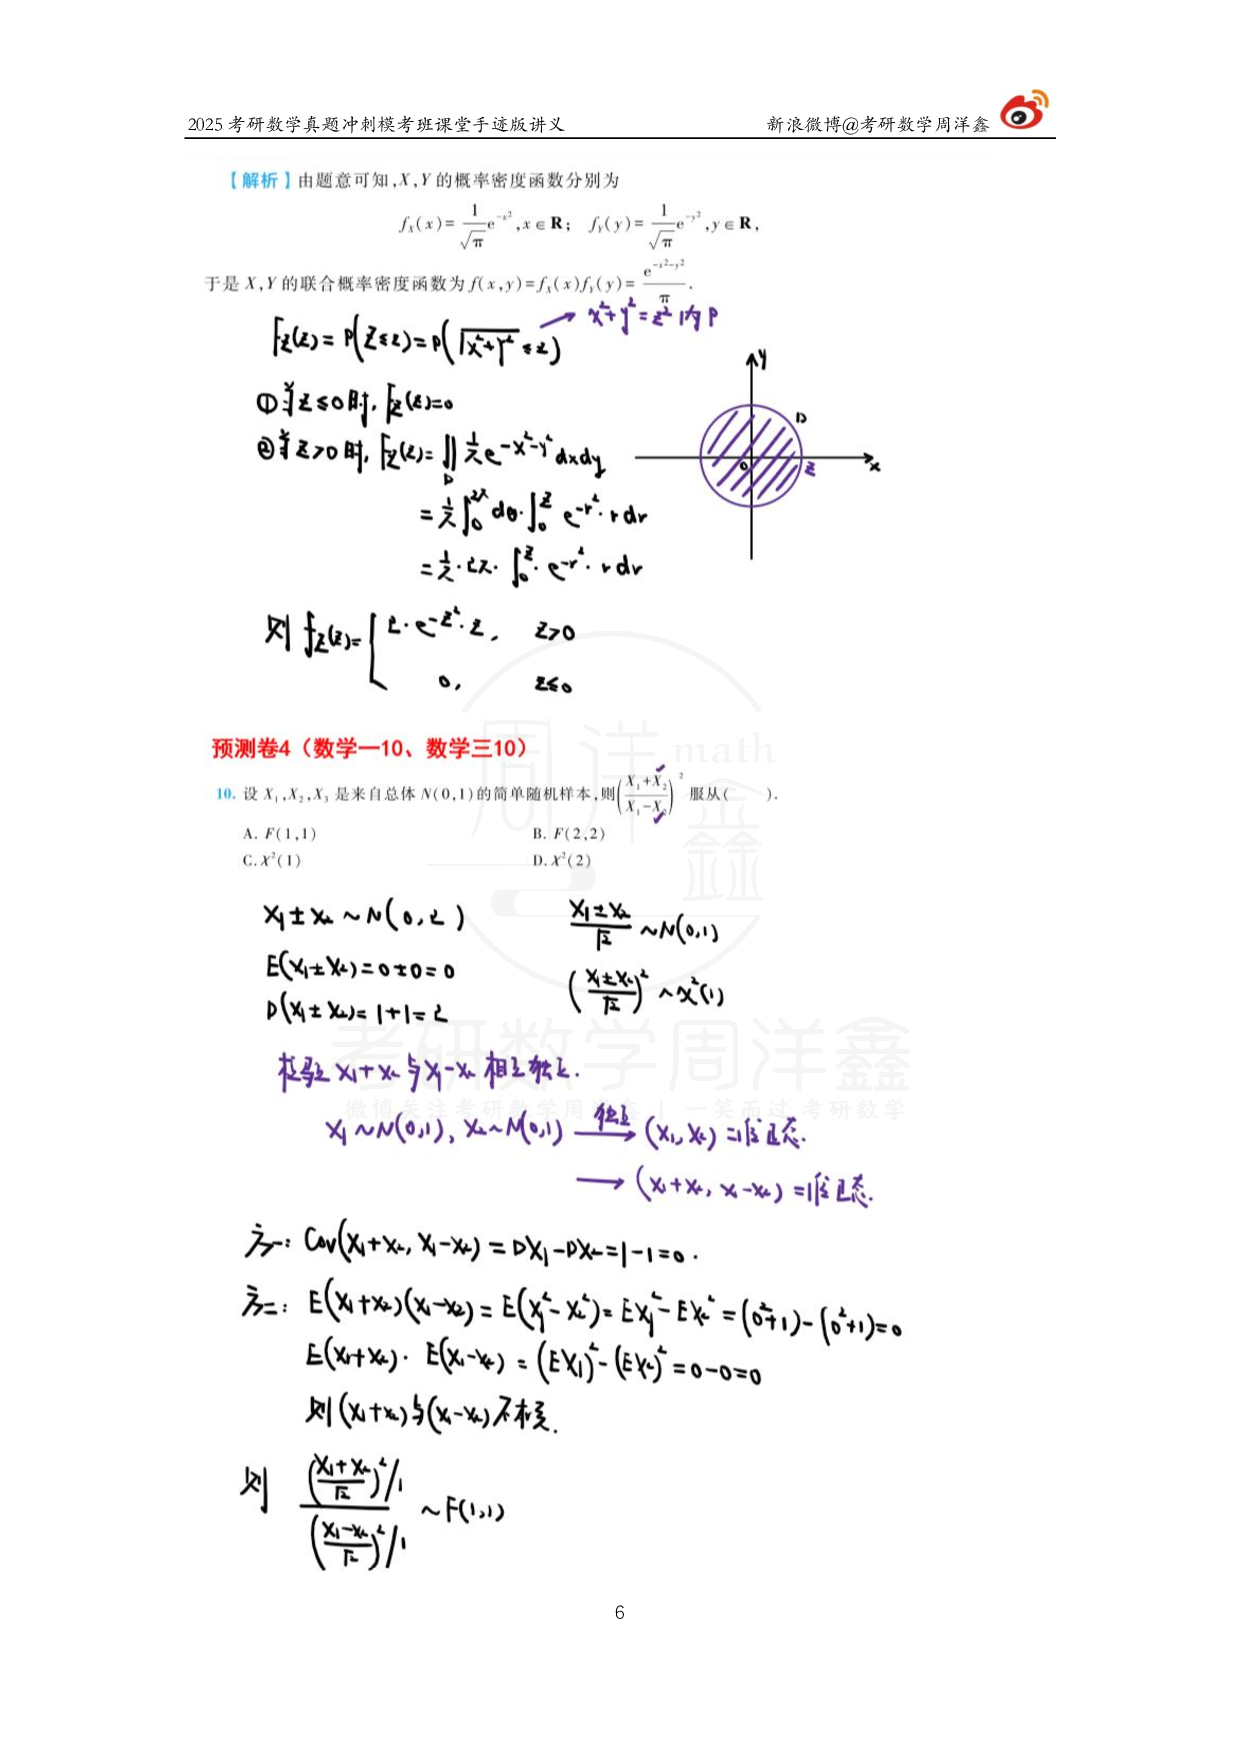 2025考研数学真题冲刺模考班课堂手迹版讲义 新浪微博@考研数学周洋鑫
【解析】由题意可知,X,Y的概率密度函数分别为
f_X(x)=\frac{1}{\sqrt{π}}e^{-x²},x∈R; f_Y(y)=\frac{1}{\sqrt{π}}e^{-y²},y∈R,
于是X,Y的联合概率密度函数为f(x,y)=f_X(x)f_Y(y)=\frac{e^{-x²-y²}}{π}.
→ x²+y²=z² 内 P
F_Z(z)=P(Z≤z)=P(\sqrt{X²+Y²}≤z)
①当z≤0时,F_Z(z)=0
②当z>0时,F_Z(z)=∬_D \frac{1}{π}e^{-x²-y²}dxdy
=\frac{1}{π}∫_0^{2π}dθ·∫_0^z e^{-r²}·rdr
=\frac{1}{π}·2π·∫_0^z·e^{-r²}·rdr
y D 0 z x
则 f_Z(z)={2·e^{-z²}·z, z>0
0, z≤0
周洋鑫 math
预测卷4（数学一10、数学三10）
10. 设X₁,X₂,X₃是来自总体N(0,1)的简单随机样本,则(\frac{X₁+X₂}{X₁-X₂})²服从( ).
A. F(1,1) B. F(2,2)
C. χ²(1) D. χ²(2)
X₁±X₂~N(0,2) \frac{X₁±X₂}{\sqrt{2}}~N(0,1)
E(X₁±X₂)=0±0=0
(\frac{X₁±X₂}{\sqrt{2}})²~χ²(1)
D(X₁±X₂)=1+1=2
考研数学周洋鑫
检验X₁+X₂与X₁-X₂相互独立.
微博关注考研数学周洋鑫 | 一笑而过考研数学
X₁~N(0,1), X₂~N(0,1) \xrightarrow{独立} (X₁,X₂)=维正态.
→ (X₁+X₂, X₁-X₂)=维正态.
方一: Cov(X₁+X₂, X₁-X₂)=DX₁-DX₂=1-1=0.
方二: E(X₁+X₂)(X₁-X₂)=E(X₁²-X₂²)=EX₁²-EX₂²=(0²+1)-(0²+1)=0
E(X₁+X₂)·E(X₁-X₂)=(EX₁)²-(EX₂)²=0-0=0
则(X₁+X₂)与(X₁-X₂)不相关.
则 \frac{(\frac{X₁+X₂}{\sqrt{2}})²/1}{(\frac{X₁-X₂}{\sqrt{2}})²/1}~F(1,1)
6